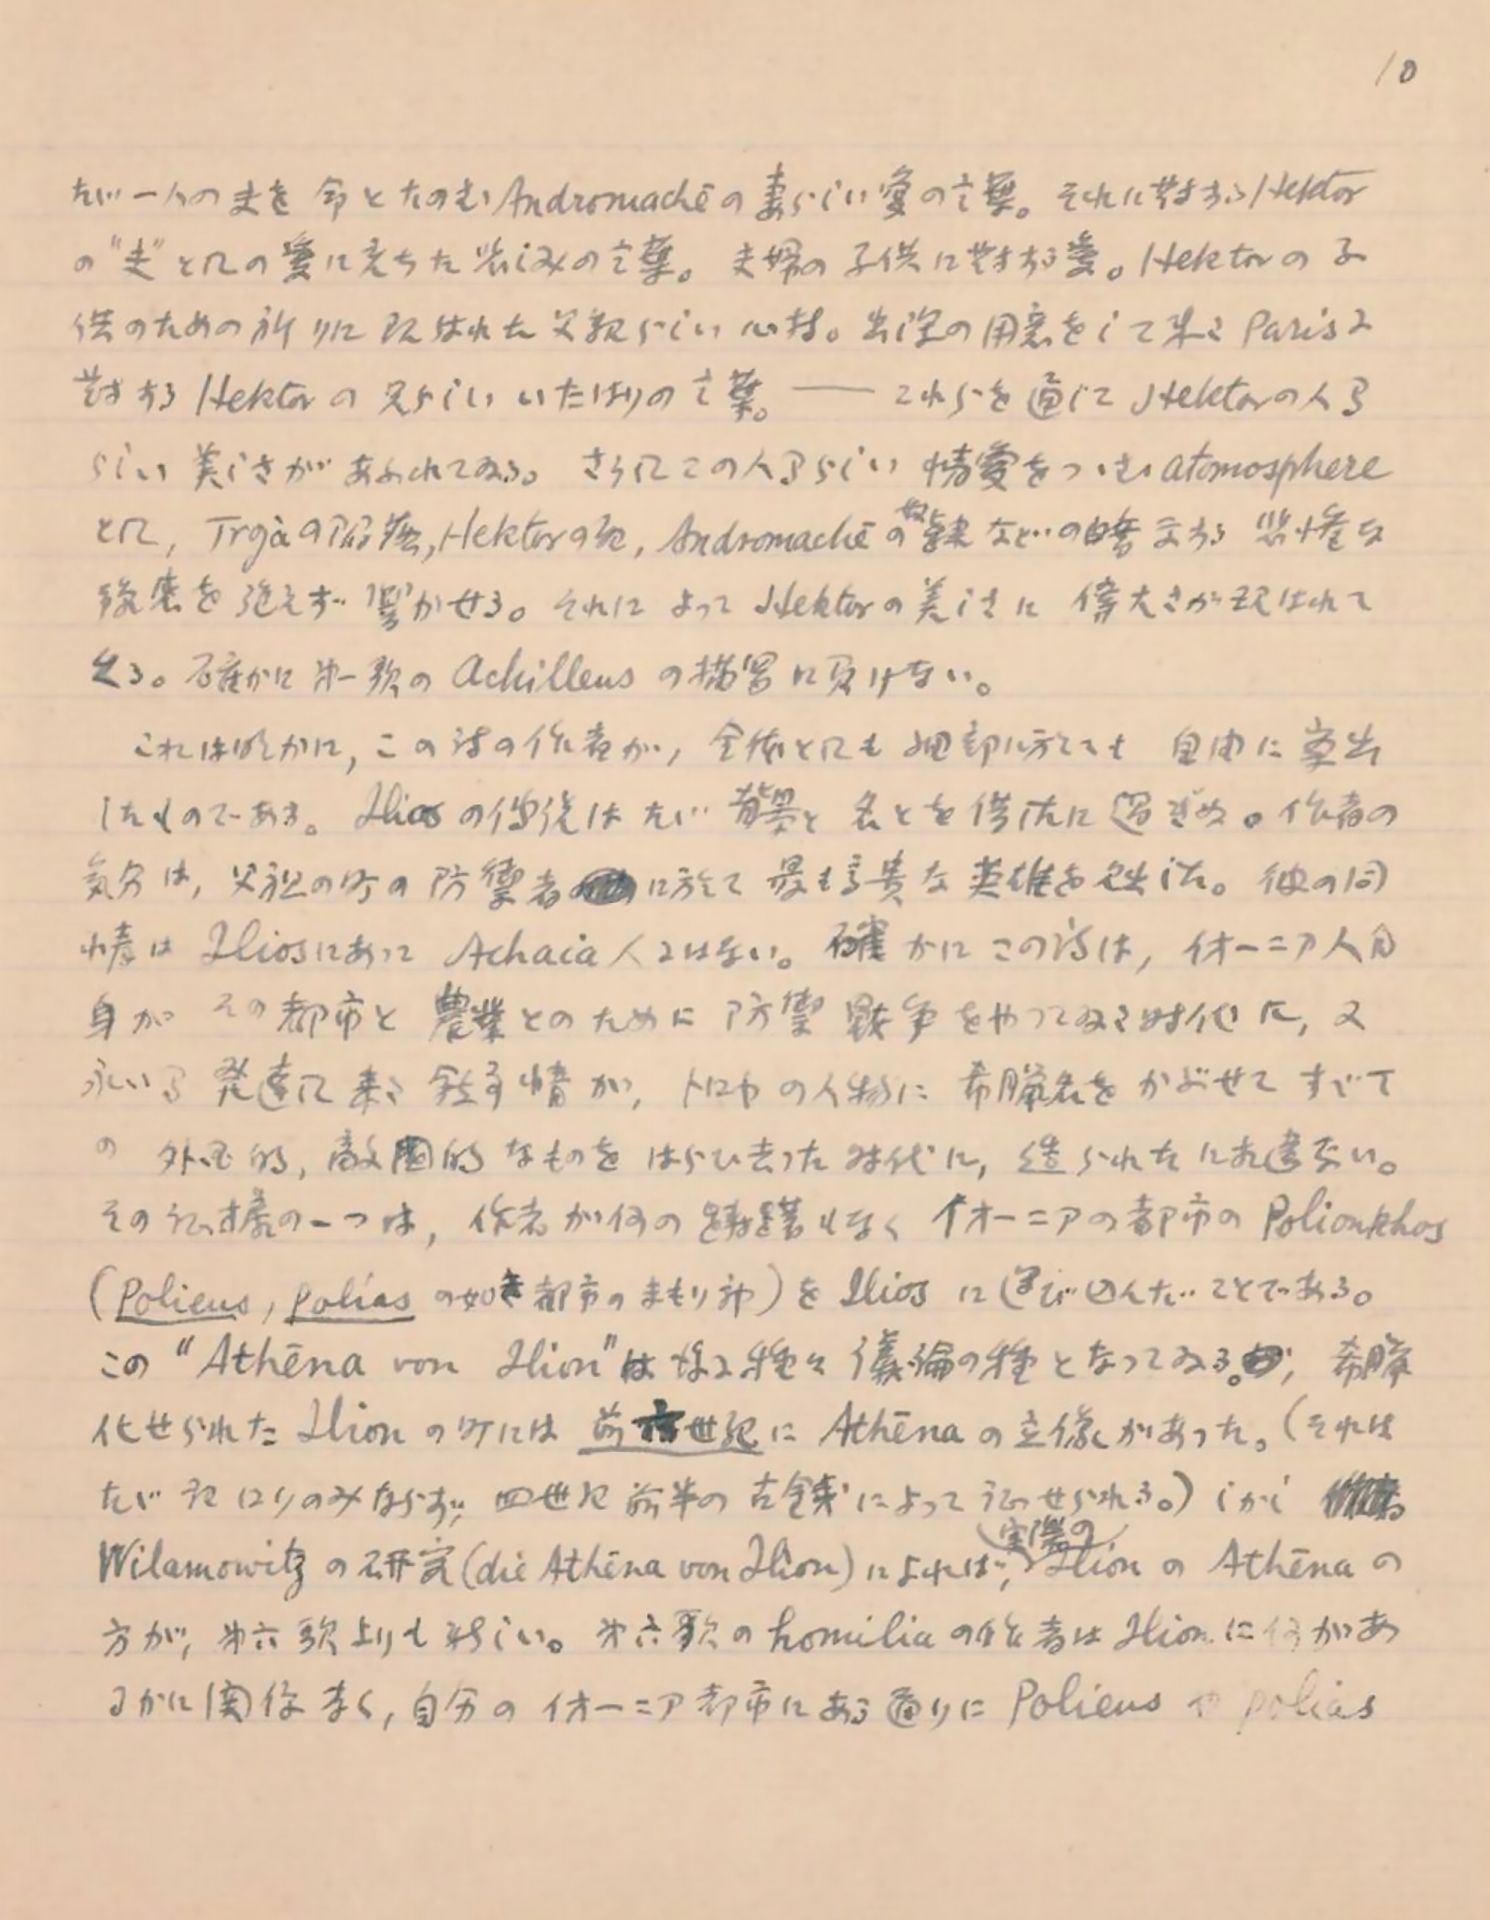 10
たゞ一人の夫を命とたのむAndromachēの妻らしい愛の言葉。それに対するHektor
の"夫"としての愛に充ちた労はりの言葉。夫婦の子供に対する愛。Hektorの子
供のための祈りに現はれた父親らしい心持。出陣の用意をして来るParisに
対するHektorの兄らしいいたはりの言葉。——これらを通じてHektorの人間
らしい美しさがあふれてゐる。さうしてこの人間らしい情愛をつゝむatomosphere
として, Trojaの陥落, Hektorの死, Andromachēの奴隷などの暗示する悲惨な
を絶えず響かせる。それによってHektorの美しさに偉大さが現はれて
くる。確かに第一歌のAchilleusの描写に負けない。
これは明かに, この詩の作者が, 全体としても細部に於ても自由に案出
したものである。Iliosの伝説はたゞ背景と名とを供したに過ぎぬ。作者の
気分は, 父祖の町の防禦者に於て最も高貴な英雄を創出した。彼の同
情はIliosにあってAchaia人にはない。確かにこの詩は, イオーニア人自
身がその都市と農業とのために防禦戦争をやってゐる時代に, 又
永い間発達して来たが, トロヤの人物に希臘名をかぶせてすべて
の外国的, 敵国的なものをはらひ去った時代に, 造られたに相違ない。
その証拠の一つは, 作者が何の躊躇もなくイオーニアの都市のPolioukhos
(Polieus, polias の如き都市のまもり神)をIliosに運び込んだことである。
この"Athēna von Ilion"は様々種々議論の種となってゐる。希臘
化せられたIlionの町には前六世紀にAthēnaの立像があった。(それは
たゞ記録のみならず, 四世紀前半の古銭によって証せられる。)しかし
Wilamowitzの研究(die Athēna von Ilion)によれば, 実際のIlionのAthēnaの
方が, 第六歌よりも新しい。第六歌のhomiliaの作者はIlionに何があ
るかに関係なく, 自分のイオーニア都市にある通りにPolieusやpolias